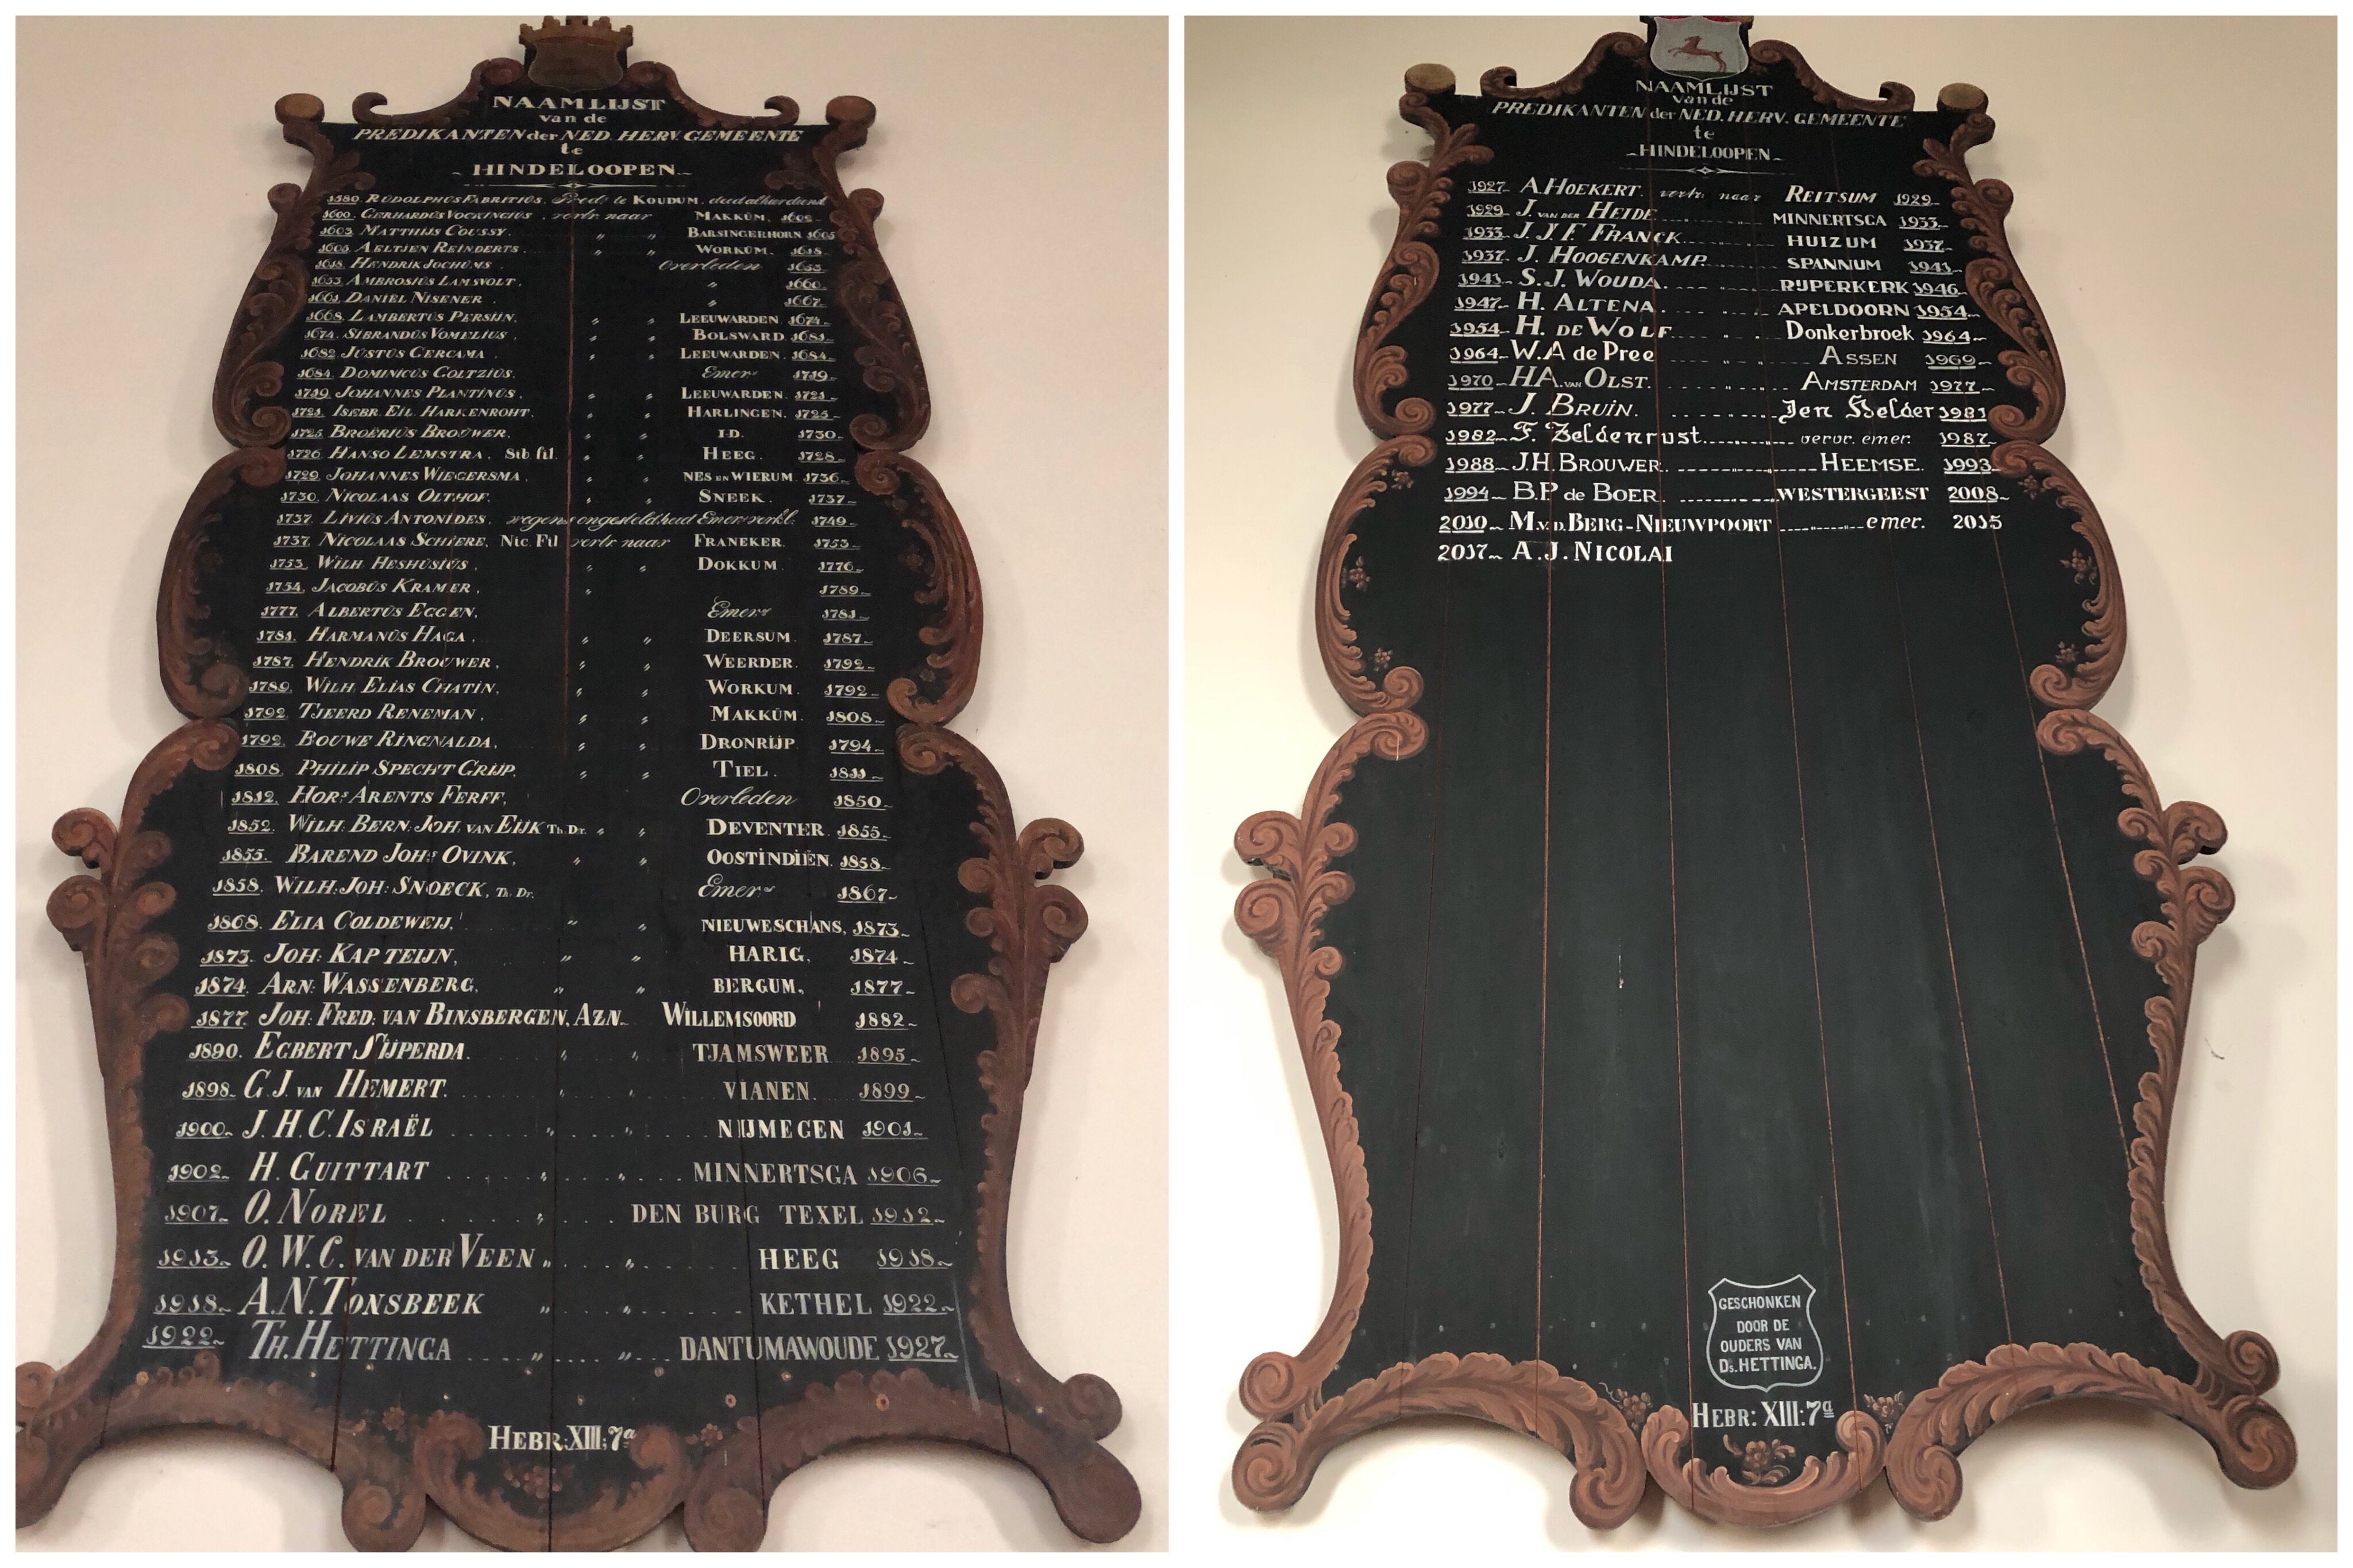 NAAMLIJST
van de
PREDIKANTEN der NED. HERV. GEMEENTE
te
~ HINDELOOPEN ~
1580 RUDOLPHUS FABRITIUS. Pred: te KOUDUM.
1600. GERHARDUS VOCKINGIUS. vertr. naar MAKKUM. 1602
1603 MATTHIJS COUSSY. „ „ BARSINGERHORN 1605
1605. AELTJEN REINDERTS. „ „ WORKUM. 1618
1618. HENDRIK JOCHUMS. Overleden 1653
1653. AMBROSIUS LAMSVOLT, „ 1660
1661. DANIEL NISENER. „ 1667
1668. LAMBERTUS PERSIJN. „ „ LEEUWARDEN. 1674
1674. SIBRANDUS VOMELIUS, „ „ BOLSWARD. 1681
1682. JUSTUS CERCAMA. „ „ LEEUWARDEN. 1684
1684. DOMINICUS GOLTZIUS. Emer 1719
1719. JOHANNES PLANTINUS, „ „ LEEUWARDEN. 1721
1721. ISEBR. EIL. HARKENROHT, „ „ HARLINGEN. 1725
1725. BROËRIUS BROUWER. „ „ I.D. 1730
1726. HANSO LEMSTRA. Sib fil. „ „ HEEG. 1728
1729. JOHANNES WIEGERSMA, „ „ NES EN WIERUM. 1736
1730. NICOLAAS OLTHOF. „ „ SNEEK. 1737
1737. LIVIUS ANTONIDES. wegens ongesteldheid Emer. verkl. 1749
1737. NICOLAAS SCHIERE, Nic. Fil vertr. naar FRANEKER. 1753
1753. WILH HESHUSIUS, „ „ DOKKUM. 1776
1754. JACOBUS KRAMER, „ 1789
1777. ALBERTUS EGGEN, Emer 1781
1781. HARMANUS HAGA, „ „ DEERSUM. 1787
1787. HENDRIK BROUWER, „ „ WEERDER. 1792
1789. WILH. ELIAS CHATIN, „ „ WORKUM. 1792
1792. TJEERD RENEMAN, „ „ MAKKUM. 1808
1792. BOUWE RINGNALDA, „ „ DRONRIJP. 1794
1808. PHILIP SPECHT GRIJP, „ „ TIEL. 1811
1812. HORs ARENTS FERFF, Overleden 1850
1852. WILH: BERN: JOH. VAN EIJK Th: Dr. „ „ DEVENTER. 1855
1855. BAREND JOHs OVINK, „ „ OOSTINDIËN. 1858
1858. WILH: JOH: SNOECK, Th. Dr. Emer 1867
1868. ELIA COLDEWEIJ, „ „ NIEUWESCHANS, 1873
1873. JOH: KAPTEIJN, „ „ HARIG, 1874
1874. ARN: WASSENBERG, „ „ BERGUM, 1877
1877. JOH: FRED: VAN BINSBERGEN, AZN. WILLEMSOORD 1882
1890. EGBERT SIJPERDA. „ „ TJAMSWEER 1895
1898. G.J. VAN HEMERT. „ „ VIANEN. 1899
1900. J.H.C. ISRAËL „ „ NIJMEGEN 1901
1902. H. GUITTART „ „ MINNERTSGA 1906
1907. O. NOREL „ DEN BURG TEXEL 1912
1913. O.W.C. VAN DER VEEN „ „ HEEG 1918
1918. A.N. TONSBEEK „ „ KETHEL 1922
1922 TH. HETTINGA „ „ DANTUMAWOUDE 1927
HEBR: XIII; 7a
NAAMLIJST
van de
PREDIKANTEN der NED. HERV. GEMEENTE
te
~ HINDELOOPEN ~
1927 A. HOEKERT. vertr. naar REITSUM 1929
1929 J. VAN DER HEIDE „ „ MINNERTSGA 1933
1933 J.J.F. FRANCK „ „ HUIZUM 1937
1937 J. HOOGENKAMP „ „ SPANNUM 1941
1941 S.J. WOUDA. „ „ RIJPERKERK 1946
1947 H. ALTENA „ „ APELDOORN 1954
1954 H. DE WOLF „ „ Donkerbroek 1964
1964 W.A de Pree „ „ ASSEN 1969
1970 H.A. VAN OLST. „ „ AMSTERDAM 1977
1977 J. BRUIN. „ „ Den Helder 1981
1982 F. Zeldenrust „ vervr. emer. 1987
1988 J.H. BROUWER „ „ HEEMSE. 1993
1994 B.P. de BOER „ „ WESTERGEEST 2008
2010 M.V.D. BERG-NIEUWPOORT „ emer. 2015
2017 A.J. NICOLAI
GESCHONKEN
DOOR DE
OUDERS VAN
Ds. HETTINGA.
HEBR: XIII: 7a